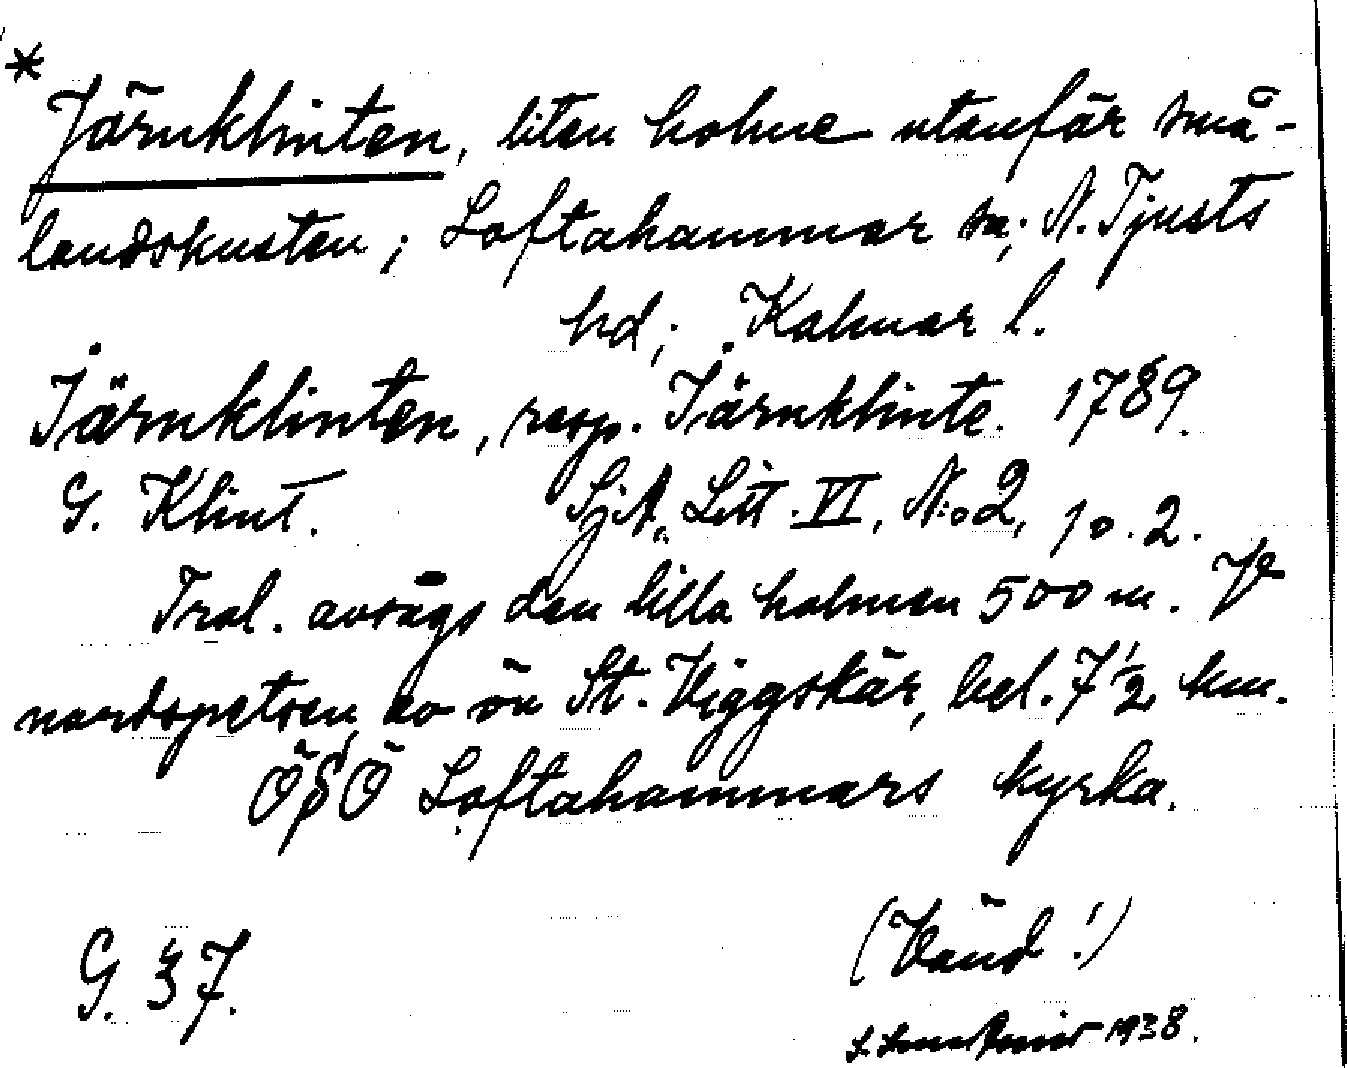 *
Järnklinten, liten holme utanför små-
landskusten; Loftahammar sn; N. Tjusts
hd; Kalmar l.
Järnklinten, resp. Järnklinte. 1789.
G. Klint. SjA, Litt. VI, No 2, p. 2.
Trol. avsågs den lilla holmen 500 m.
nordspetsen av ön St. Viggskär, bel. 7 1/2 km.
ÖSÖ Loftahammars kyrka.
(Vänd!)
G. 37.
1938.